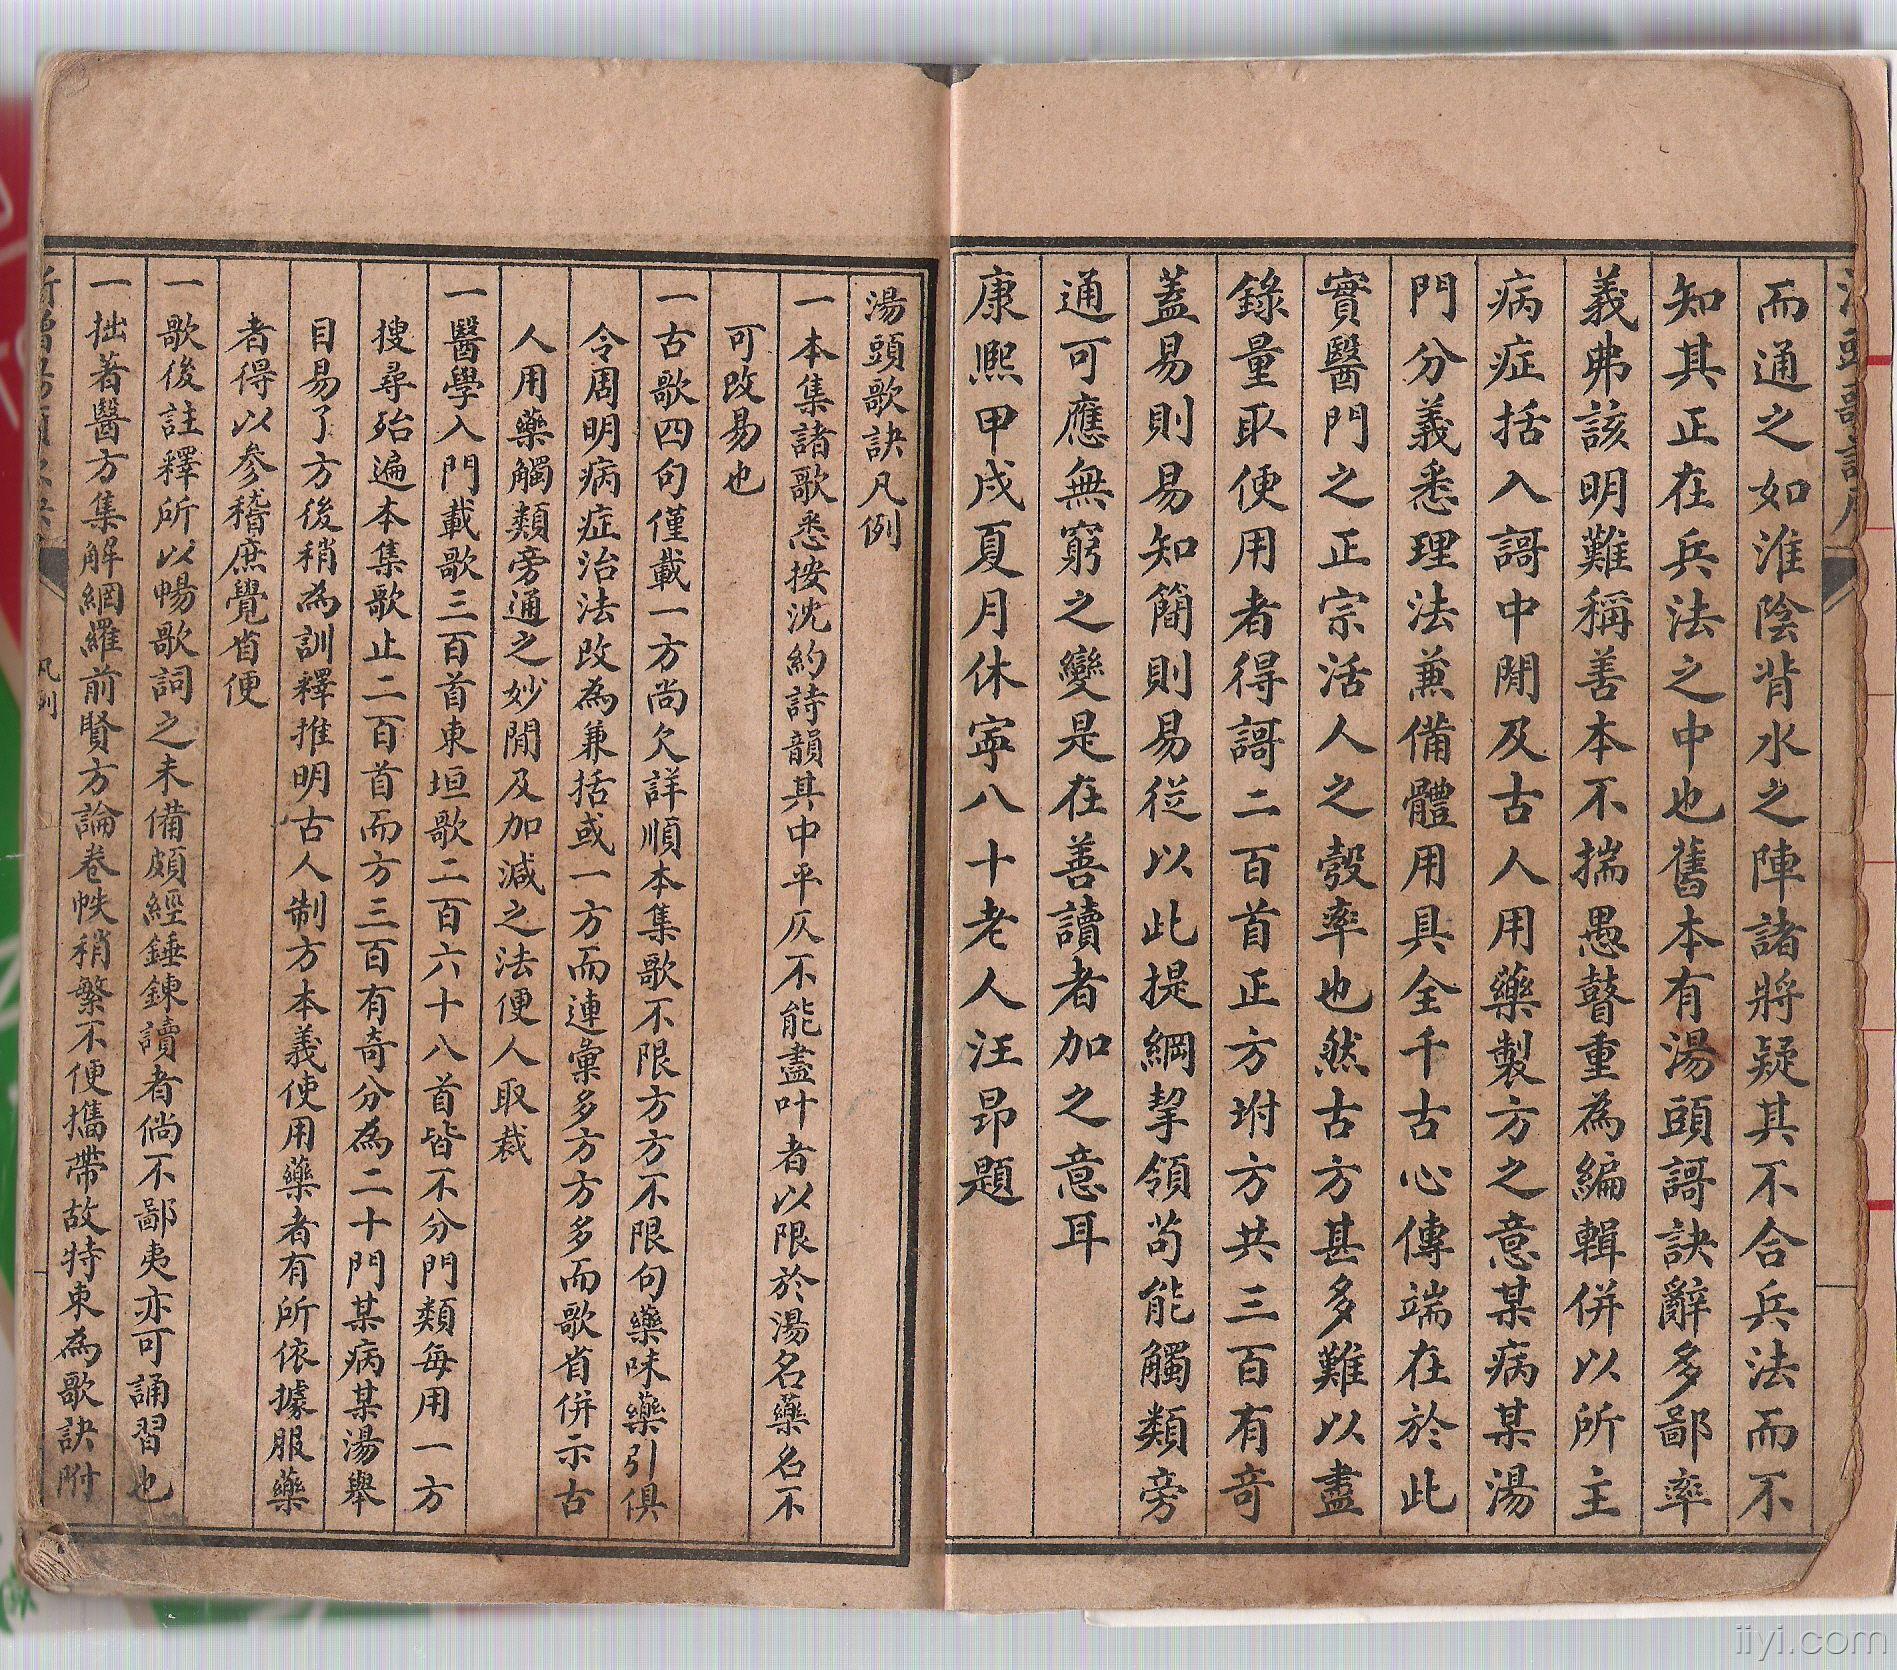 湯頭歌訣序
而通之如淮陰背水之陣諸將疑其不合兵法而不
知其正在兵法之中也舊本有湯頭謌訣辭多鄙率
義弗該明難稱善本不揣愚瞽重為編輯併以所主
病症括入謌中間及古人用藥製方之意某病某湯
門分義悉理法兼備體用具全千古心傳端在於此
實醫門之正宗活人之彀率也然古方甚多難以盡
錄量取便用者得謌二百首正方坿方共三百有奇
蓋易則易知簡則易從以此提綱挈領苟能觸類旁
通可應無窮之變是在善讀者加之意耳
康熙甲戌夏月休寧八十老人汪昂題
湯頭歌訣凡例
一本集諸歌悉按沈約詩韻其中平仄不能盡叶者以限於湯名藥名不
可改易也
一古歌四句僅載一方尚欠詳順本集歌不限方方不限句藥味藥引俱
令周明病症治法改為兼括或一方而連彙多方方多而歌省併示古
人用藥觸類旁通之妙閒及加減之法便人取裁
一醫學入門載歌三百首東垣歌二百六十八首皆不分門類每用一方
搜尋殆遍本集歌止二百首而方三百有奇分為二十門某病某湯舉
目易了方後稍為訓釋推明古人制方本義使用藥者有所依據服藥
者得以參稽庶覺省便
一歌後註釋所以暢歌詞之未備頗經錘鍊讀者倘不鄙夷亦可誦習也
一拙著醫方集解網羅前賢方論卷帙稍繁不便攜帶故特束為歌訣附
凡例
iiyi.com